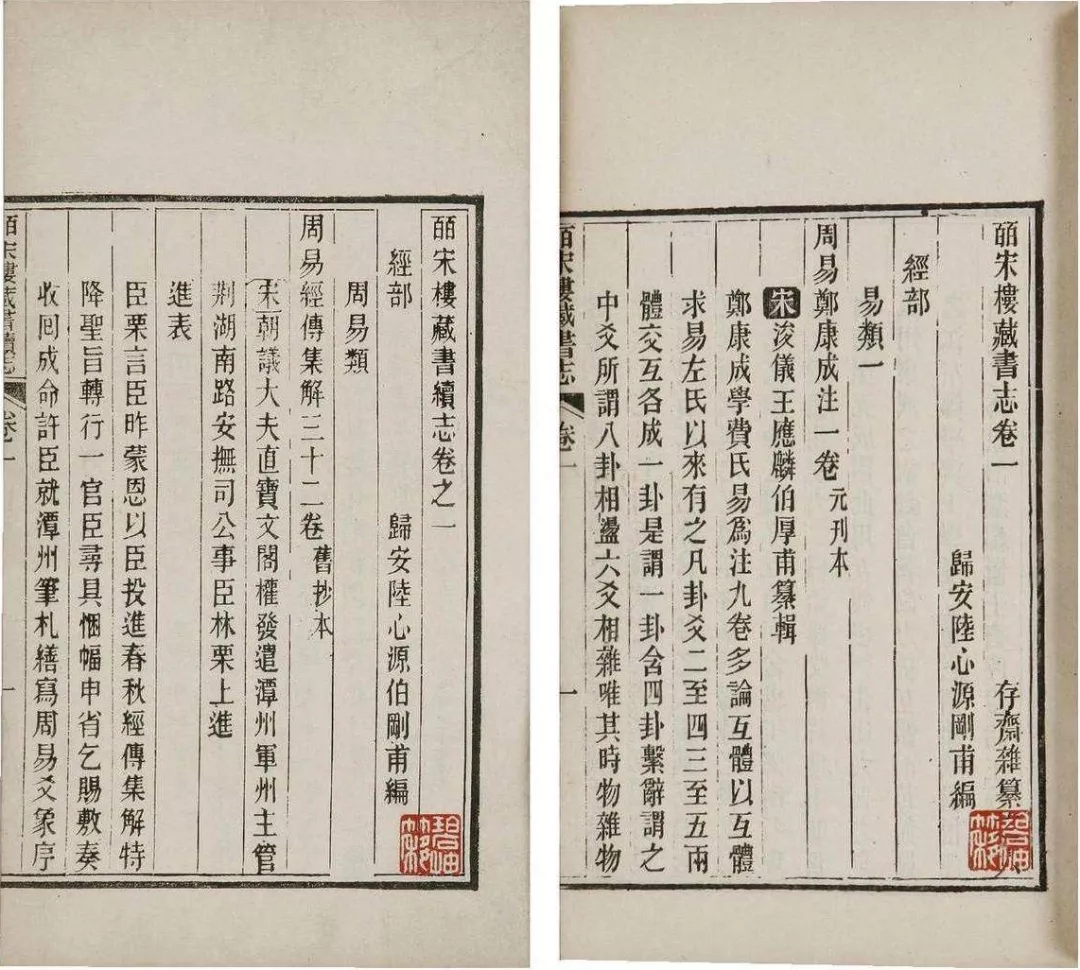 皕宋樓藏書志卷一
存齋雜纂
歸安陸心源剛甫編
經部
易類一
周易鄭康成注一卷 元刊本
宋浚儀王應麟伯厚甫纂輯
鄭康成學費氏易爲注九卷多論互體以互體
求易左氏以來有之凡卦爻二至四三至五兩
體交互各成一卦是謂一卦含四卦繫辭謂之
中爻所謂八卦相盪六爻相雜唯其時物雜物
皕宋樓藏書志
卷一
一
皕宋樓藏書續志卷之一
歸安陸心源伯剛甫編
經部
周易類
周易經傳集解三十二卷 舊抄本
宋朝議大夫直寶文閣權發遣潭州軍州主管
荆湖南路安撫司公事臣林栗上進
進表
臣栗言臣昨蒙恩以臣投進春秋經傳集解特
降聖旨轉行一官臣尋具悃愊申省乞賜敷奏
收囘成命許臣就潭州筆札繕寫周易爻象序
皕宋樓藏書續志
卷一
一